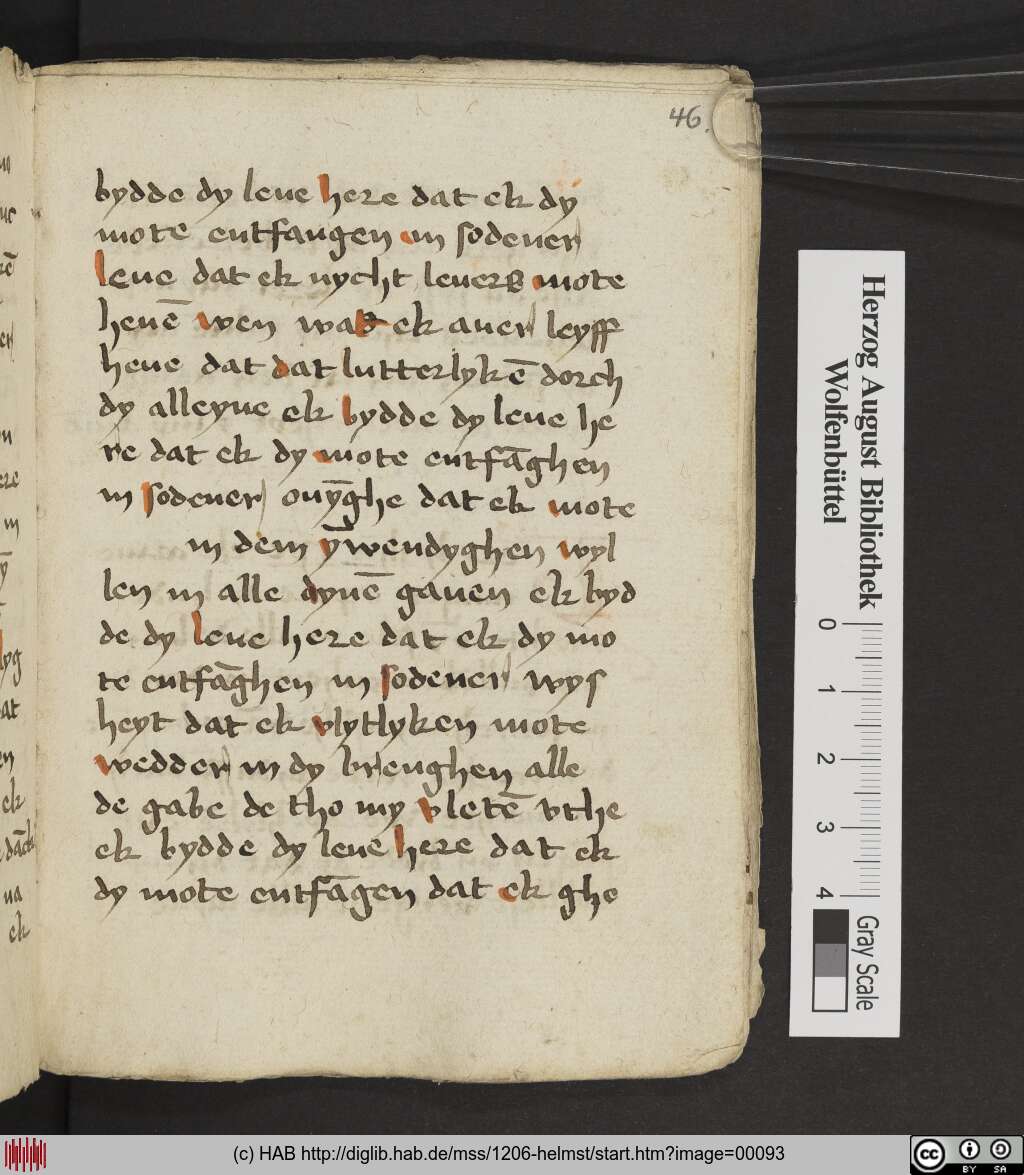 46.
bydde dy leue here dat ek dy
mote entfangen in sodener
leue dat ek nycht leuers mote
heuē wen wat ek auer leyff
heue dat dat lutterlykē dorch
dy alleyne ek bydde dy leue he
re dat ek dy mote entfāghen
in sodener ouȳghe dat ek mote
in dem ȳwendyghen wyl
len in alle dynē gauen ek byd
de dy leue here dat ek dy mo
te entfāghen in sodener wys
heyt dat ek vlytlyken mote
wedder in dy brenghen alle
de gabe de tho my vletē vthe
ek bydde dy leue here dat ek
dy mote entfāgen dat ek ghe
Herzog August Bibliothek
Wolfenbüttel
0 1 2 3 4
Gray Scale
(c) HAB http://diglib.hab.de/mss/1206-helmst/start.htm?image=00093
cc BY SA